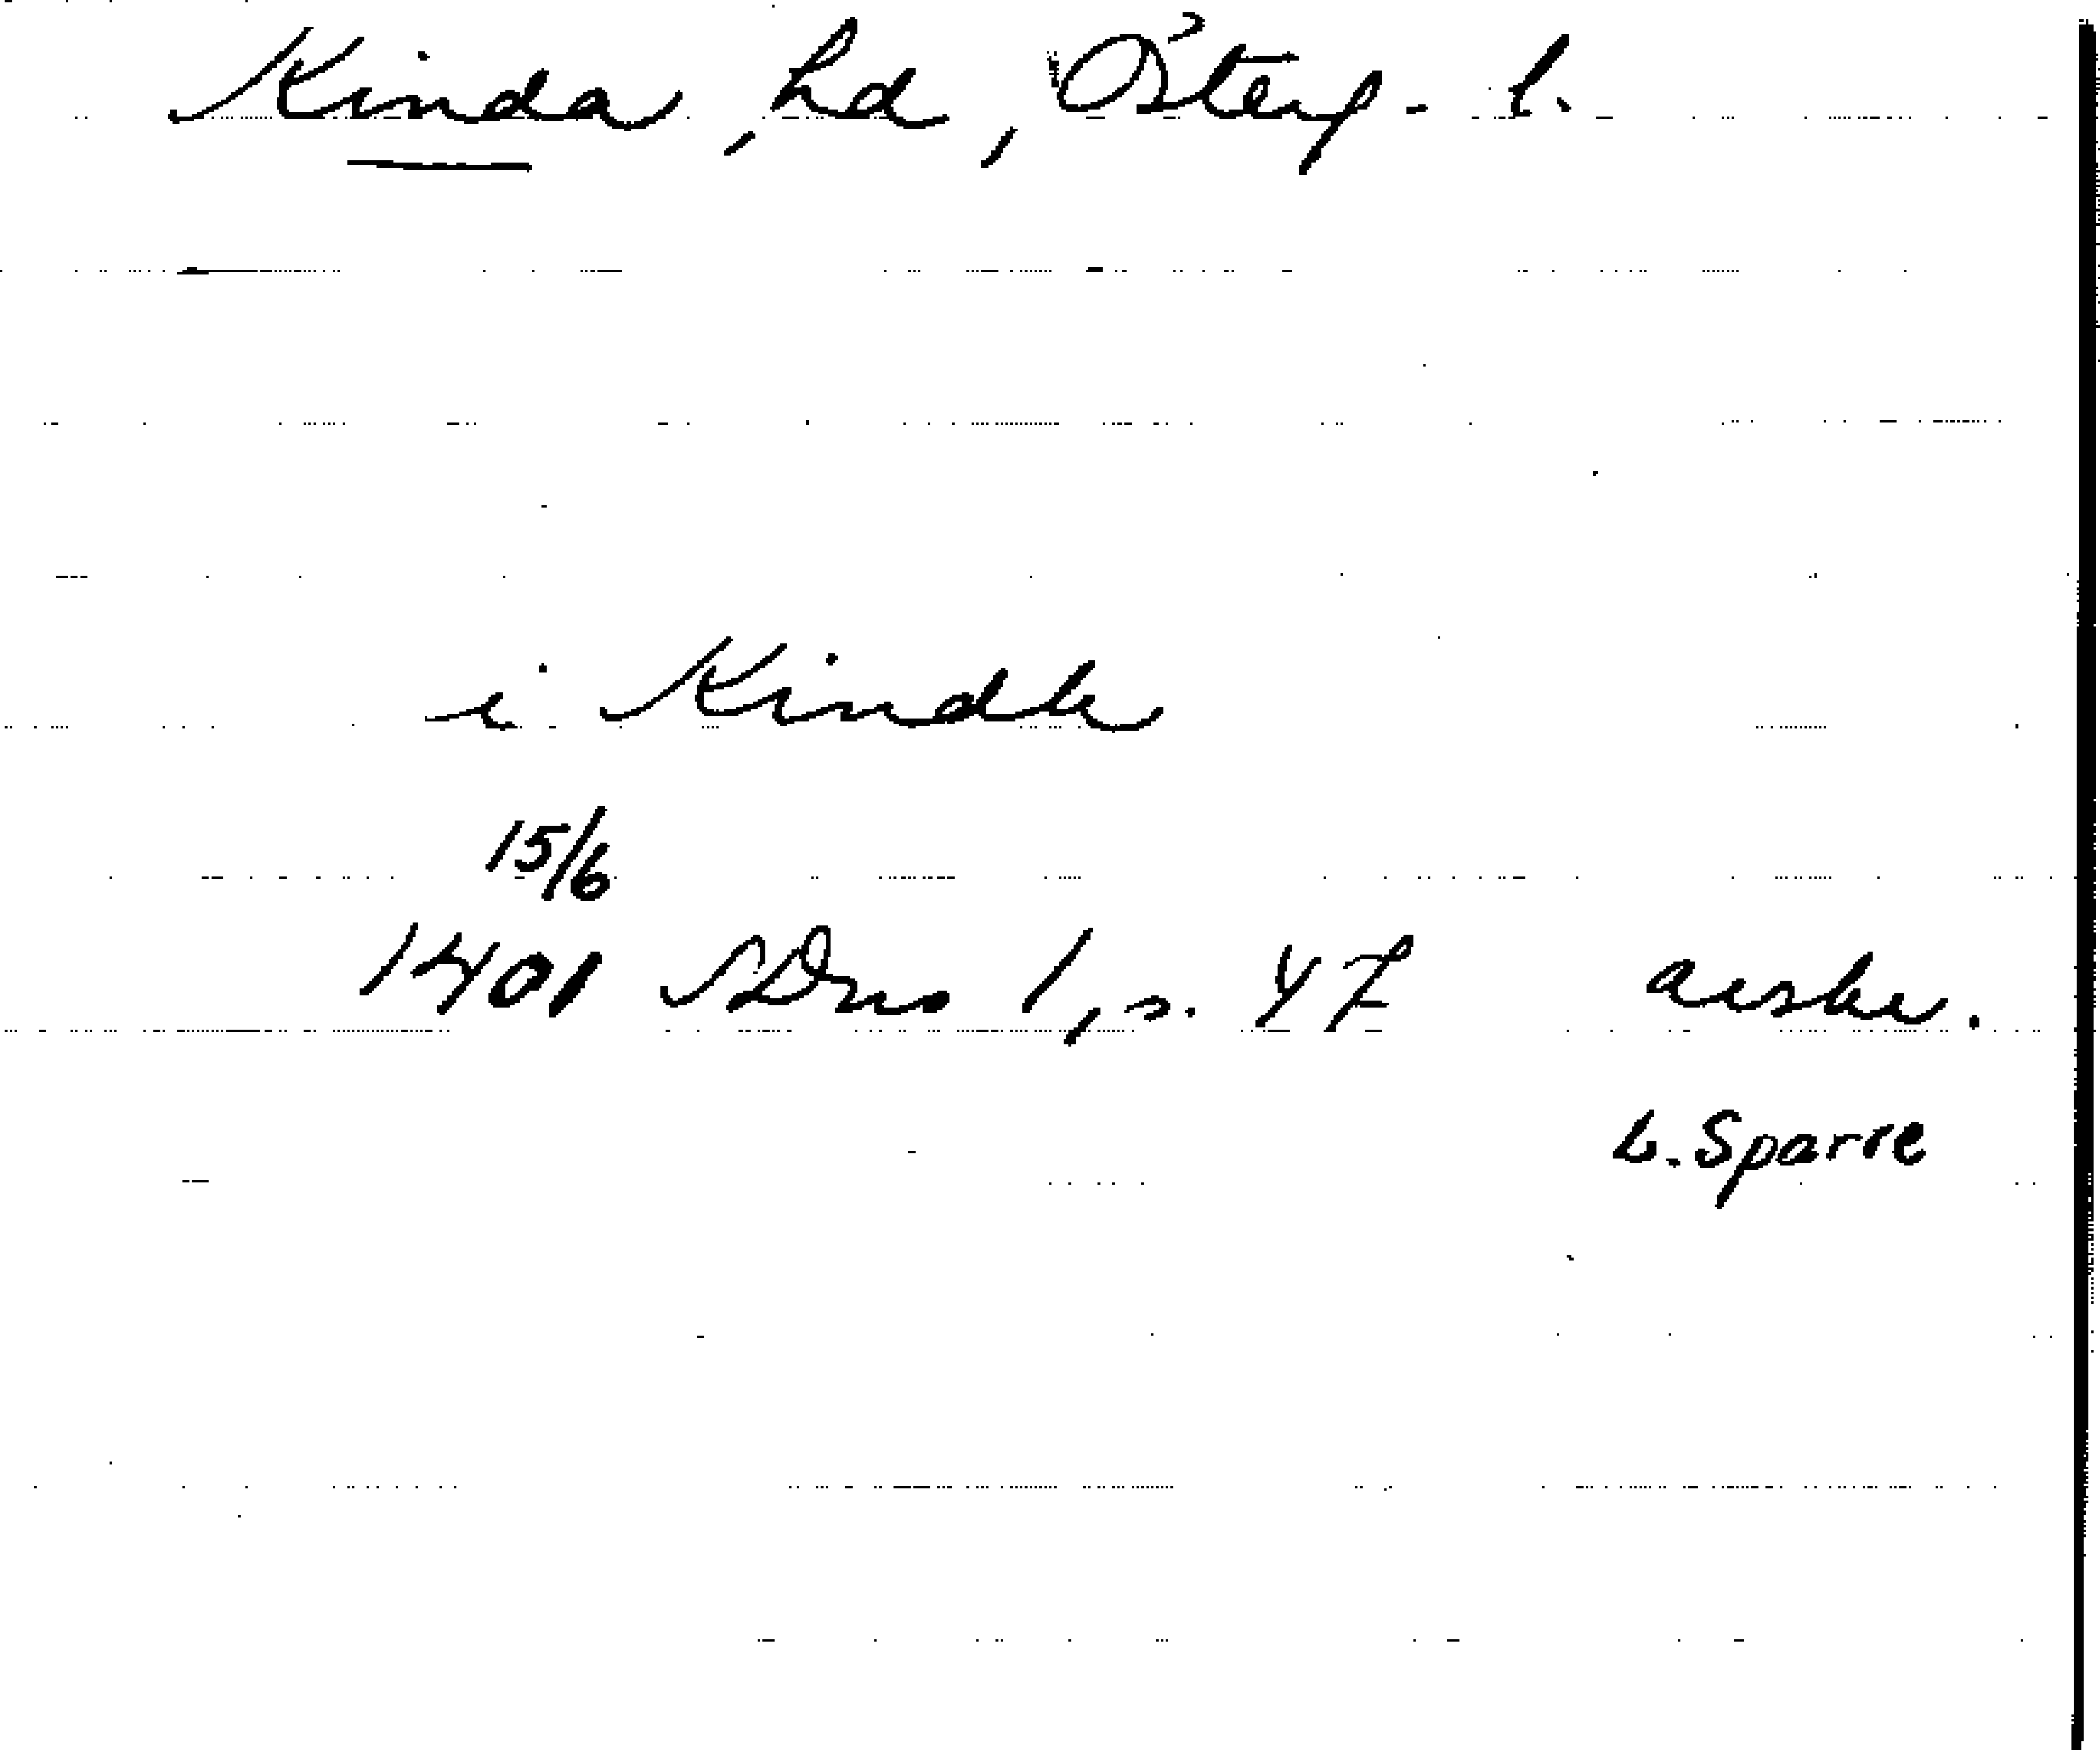 Kinda, hd, Österg. l.
i Kindh
15/6
1401 SDns 1, s. 47 avskr.
L. Sparre